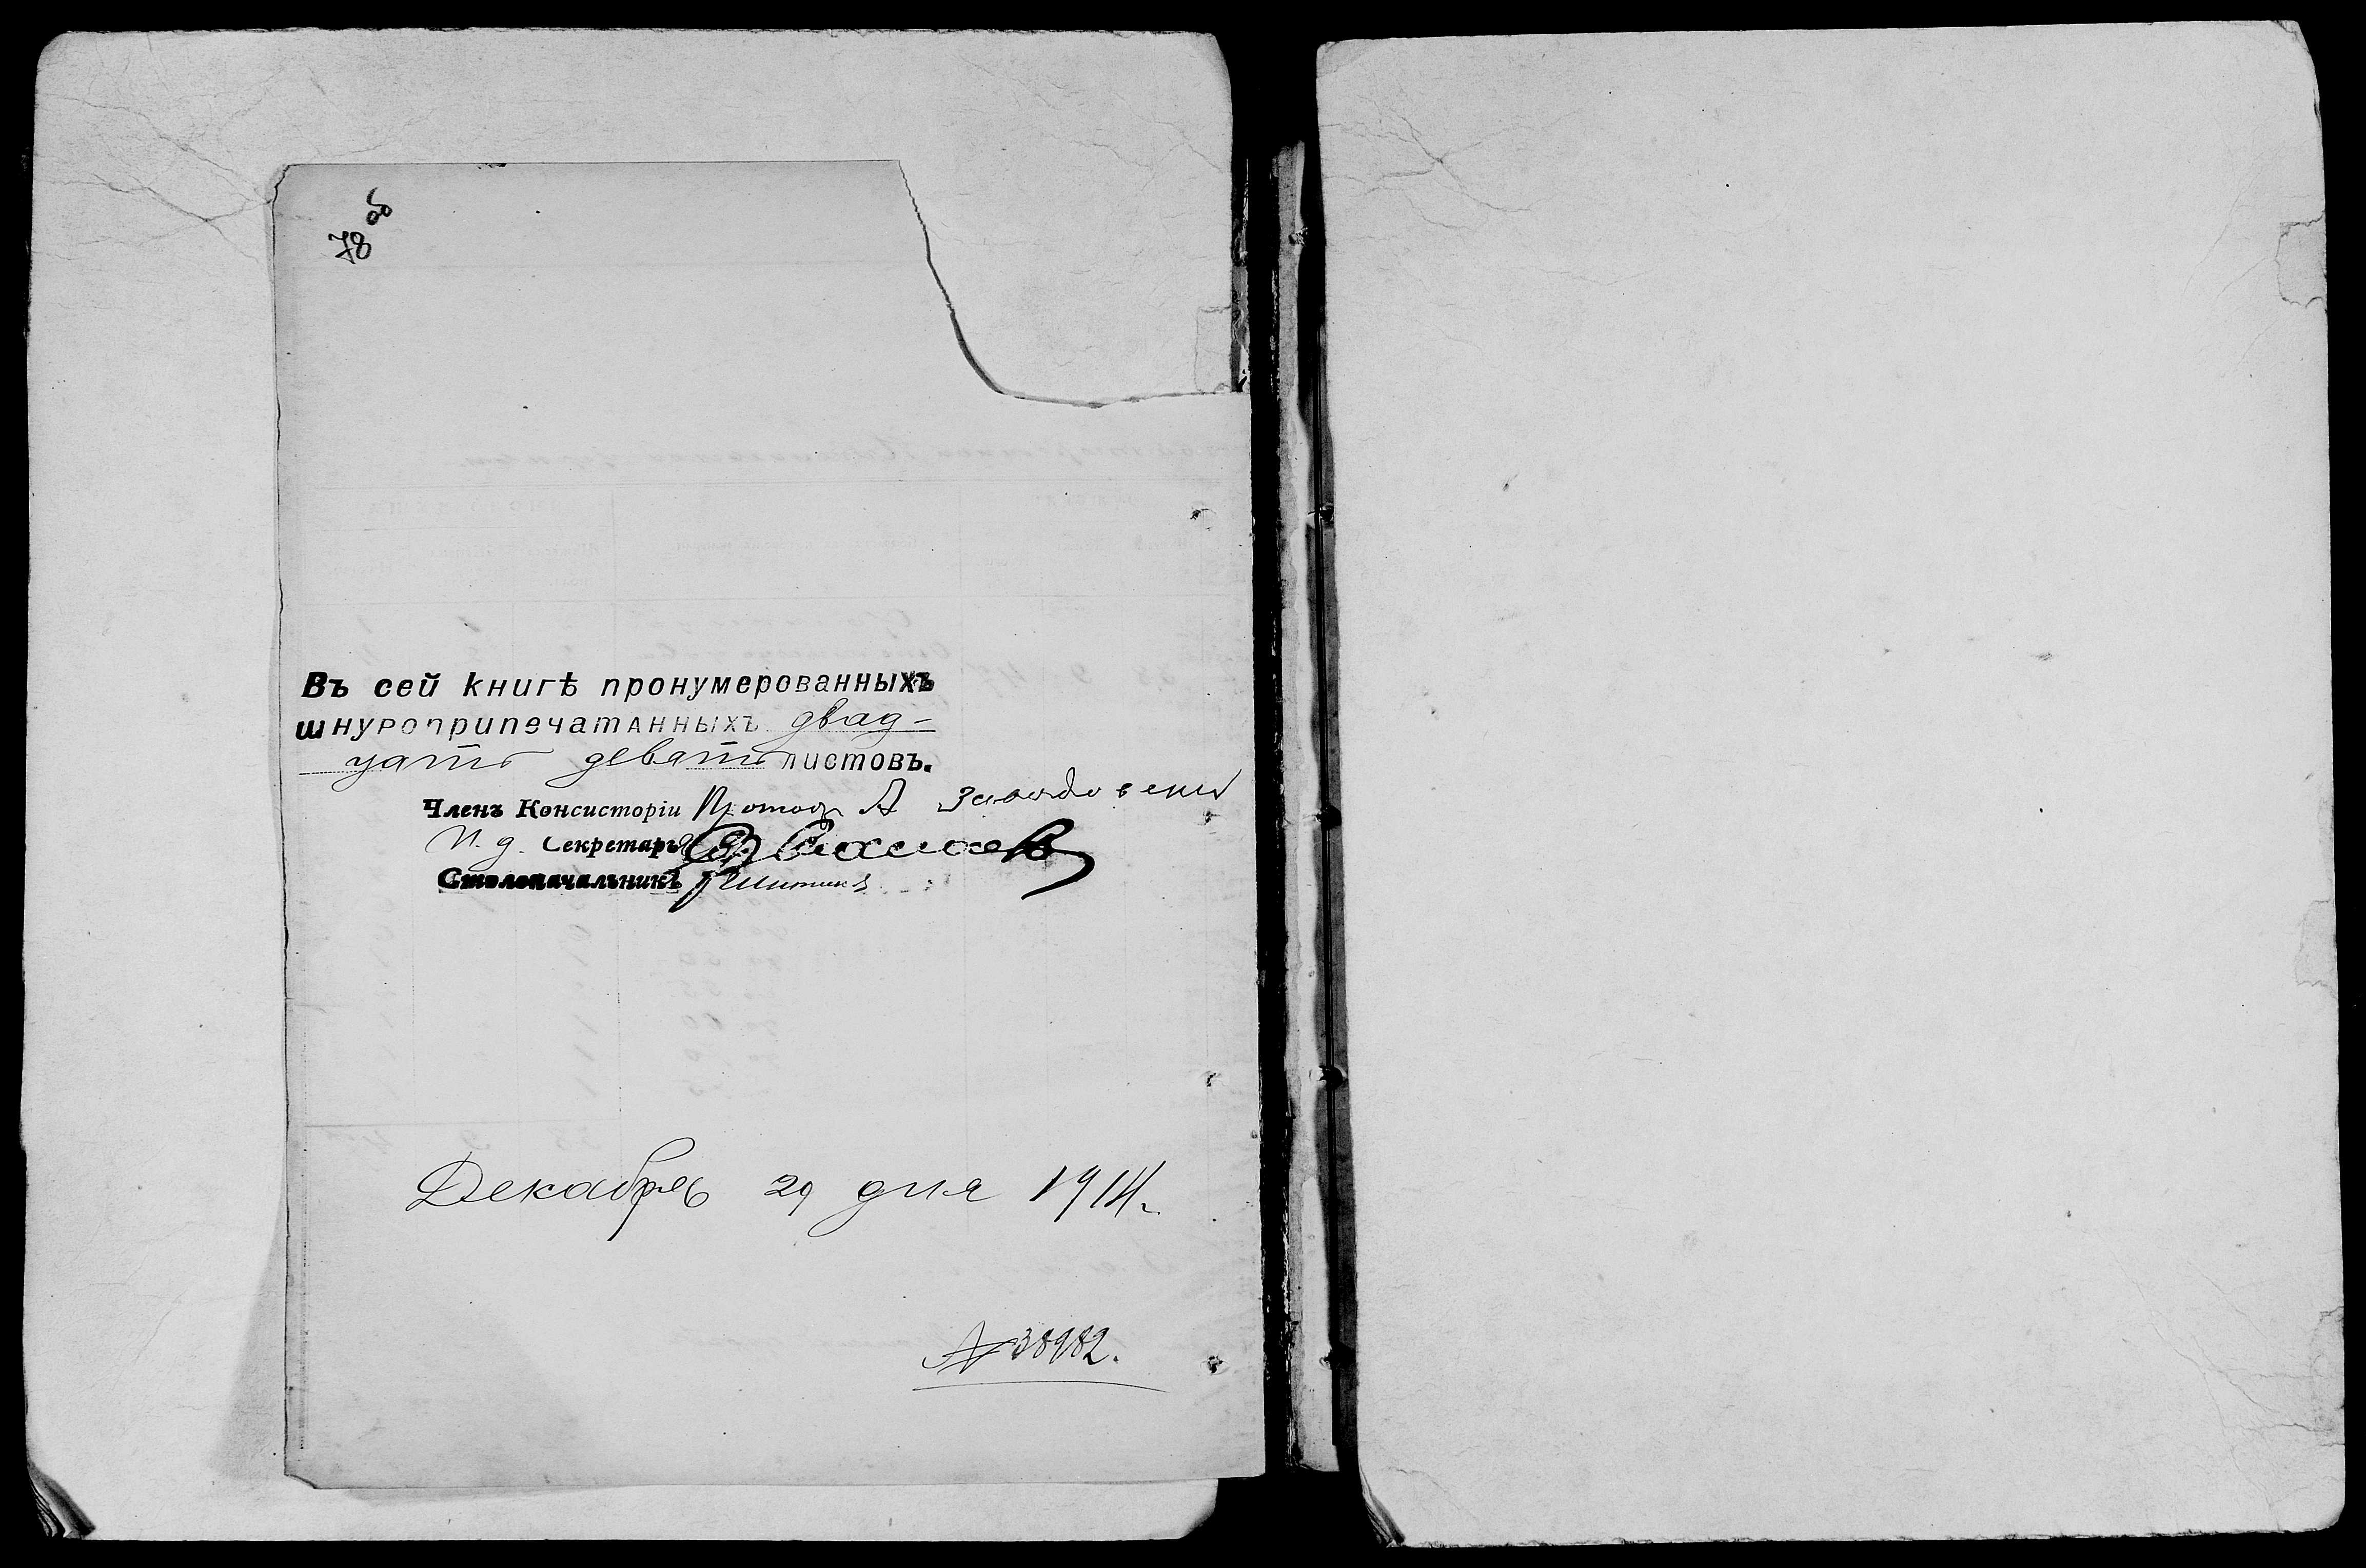 78 об
Въ сей книгѣ пронумерованныхъ
шнуроприпечатанныхъ двад-
цать девять листовъ.
Членъ Консисторіи Протоі. А
И. д. Секретаря
Столоначальникъ
Декабря 29 дня 1914 г.
№ 38982.